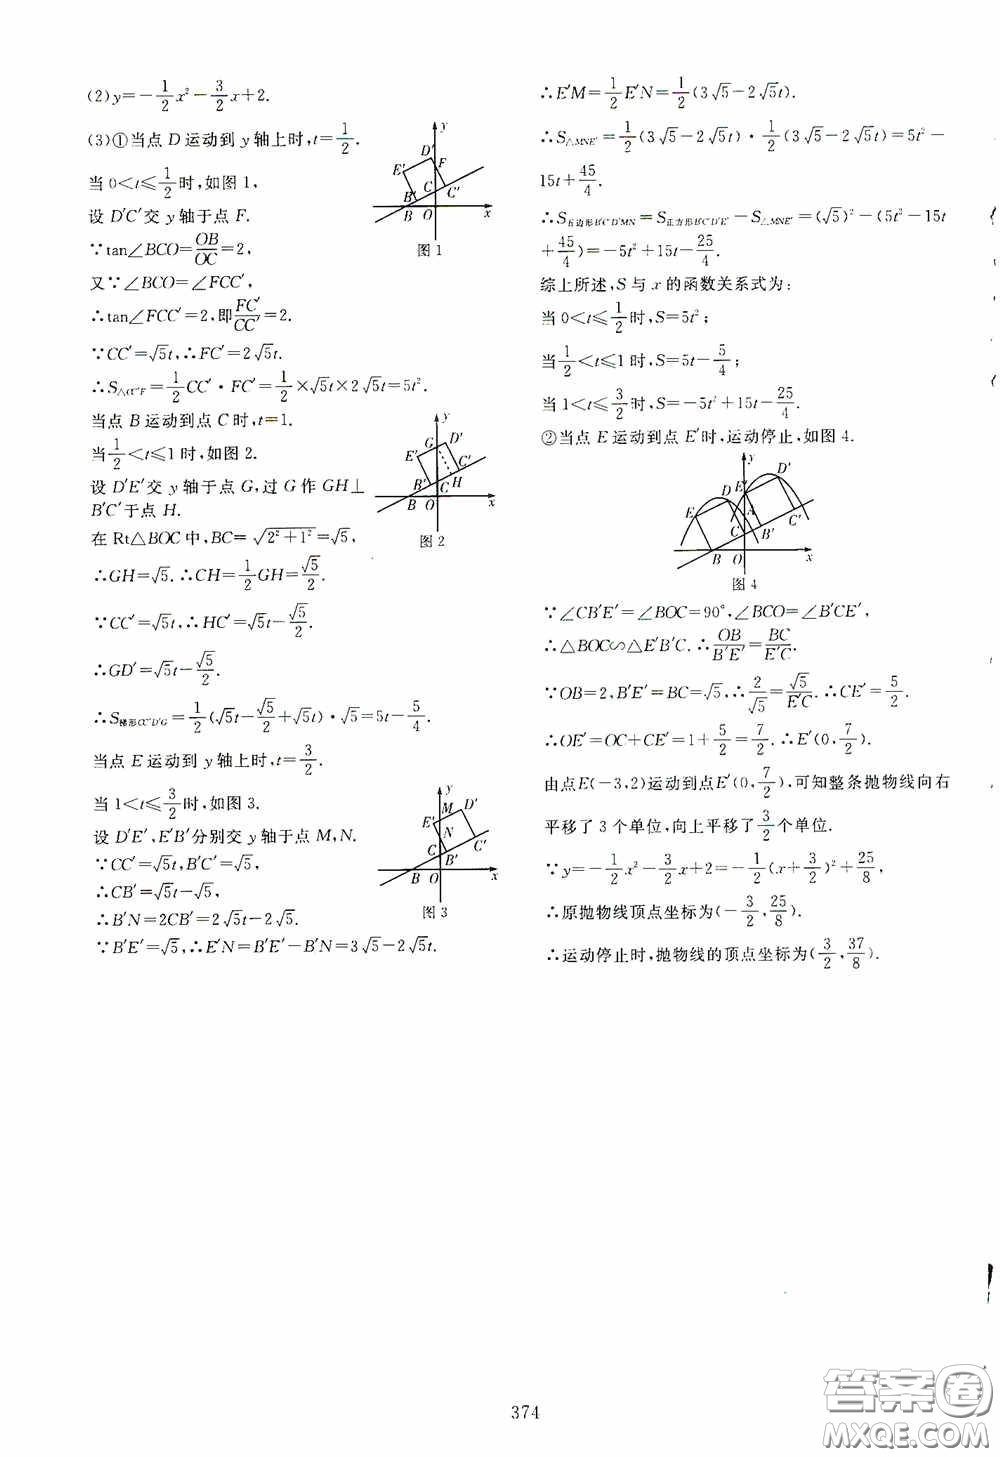 (2)y=-\frac{1}{2}x²-\frac{3}{2}x+2.
(3)①当点 D 运动到 y 轴上时,t=\frac{1}{2}.
当 0<t≤\frac{1}{2}时,如图 1,
设 D′C′交 y 轴于点 F.
∵tan∠BCO=\frac{OB}{OC}=2,
又∵∠BCO=∠FCC′,
∴tan∠FCC′=2,即\frac{FC′}{CC′}=2.
∵CC′=√5t,∴FC′=2√5t.
∴S△CC′F=\frac{1}{2}CC′·FC′=\frac{1}{2}×√5t×2√5t=5t².
当点 B 运动到点 C 时,t=1.
当\frac{1}{2}<t≤1 时,如图 2.
设 D′E′交 y 轴于点 G,过 G 作 GH⊥
B′C′于点 H.
在 Rt△BOC 中,BC=√(2²+1²)=√5,
∴GH=√5.∴CH=\frac{1}{2}GH=\frac{√5}{2}.
∵CC′=√5t,∴HC′=√5t-\frac{√5}{2}.
∴GD′=√5t-\frac{√5}{2}.
∴S梯形CC′D′G=\frac{1}{2}(√5t-\frac{√5}{2}+√5t)·√5=5t-\frac{5}{4}.
当点 E 运动到 y 轴上时,t=\frac{3}{2}.
当 1<t≤\frac{3}{2}时,如图 3.
设 D′E′,E′B′分别交 y 轴于点 M,N.
∵CC′=√5t,B′C′=√5,
∴CB′=√5t-√5.
∴B′N=2CB′=2√5t-2√5.
∵B′E′=√5,∴E′N=B′E′-B′N=3√5-2√5t.
y
D′
F
E′
C
C′
B′
B O x
图 1
y
G D′
E′
C′
B′
H
C
B O x
图 2
y
M D′
E′
N
C′
C
B′
B O x
图 3
∴E′M=\frac{1}{2}E′N=\frac{1}{2}(3√5-2√5t).
∴S△MNE′=\frac{1}{2}(3√5-2√5t)·\frac{1}{2}(3√5-2√5t)=5t²-
15t+\frac{45}{4}.
∴S五边形B′C′D′MN=S正方形B′C′D′E′-S△MNE′=(√5)²-(5t²-15t
+\frac{45}{4})=-5t²+15t-\frac{25}{4}.
综上所述,S 与 x 的函数关系式为:
当 0<t≤\frac{1}{2}时,S=5t²;
当\frac{1}{2}<t≤1 时,S=5t-\frac{5}{4};
当 1<t≤\frac{3}{2}时,S=-5t²+15t-\frac{25}{4}.
②当点 E 运动到点 E′时,运动停止,如图 4.
y
D′
D E′
E
A
C′
C
B′
B O x
图 4
∵∠CB′E′=∠BOC=90°,∠BCO=∠B′CE′,
∴△BOC∽△E′B′C.∴\frac{OB}{B′E′}=\frac{BC}{E′C}.
∵OB=2,B′E′=BC=√5,∴\frac{2}{√5}=\frac{√5}{E′C}.∴CE′=\frac{5}{2}.
∴OE′=OC+CE′=1+\frac{5}{2}=\frac{7}{2}.∴E′(0,\frac{7}{2}).
由点E(-3,2)运动到点E′(0,\frac{7}{2}),可知整条抛物线向右
平移了 3 个单位,向上平移了\frac{3}{2}个单位.
∵y=-\frac{1}{2}x²-\frac{3}{2}x+2=-\frac{1}{2}(x+\frac{3}{2})²+\frac{25}{8},
∴原抛物线顶点坐标为(-\frac{3}{2},\frac{25}{8}).
∴运动停止时,抛物线的顶点坐标为(\frac{3}{2},\frac{37}{8}).
374
答案卷
MXQE.COM